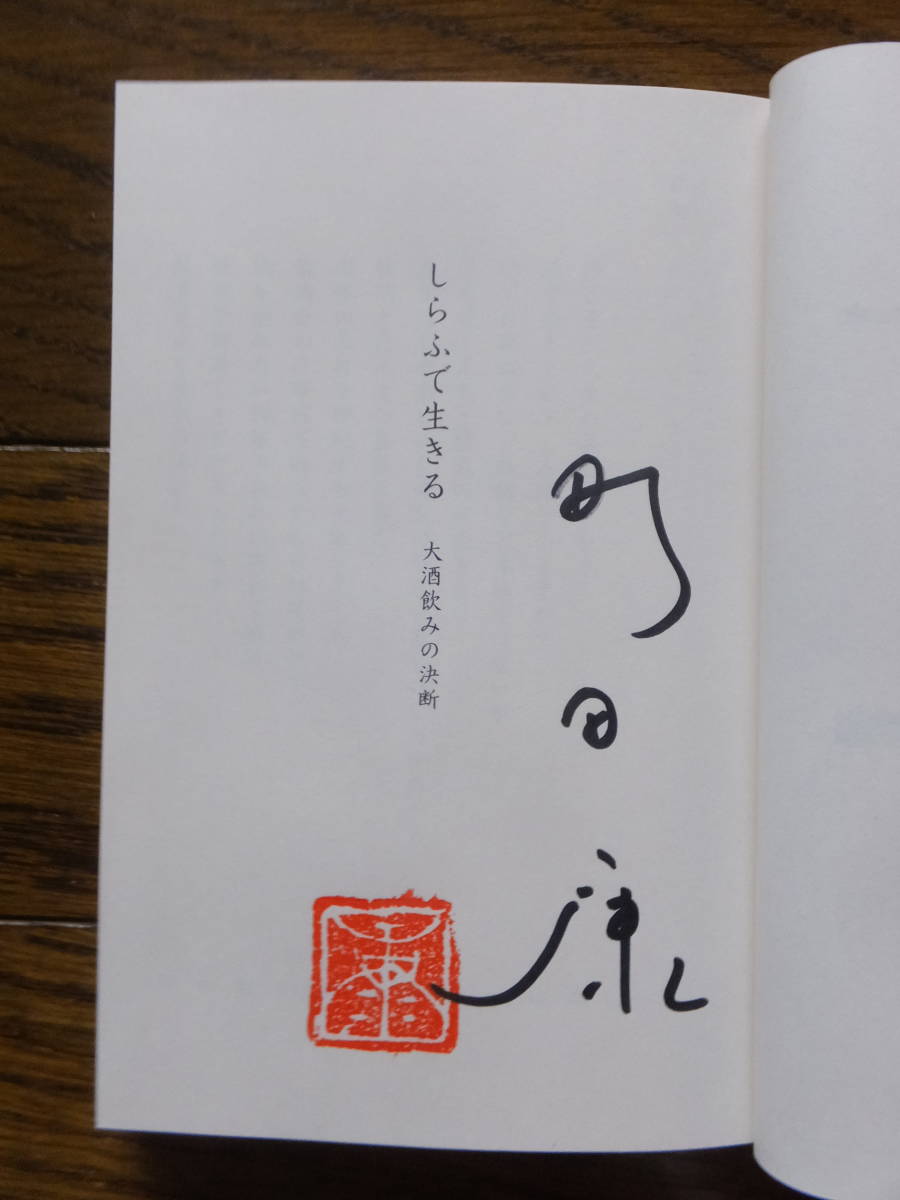 町田康
しらふで生きる 大酒飲みの決断